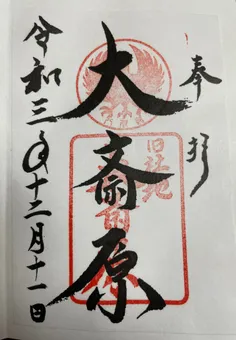 奉拝
大斎原
旧社地
令和三年十二月十一日